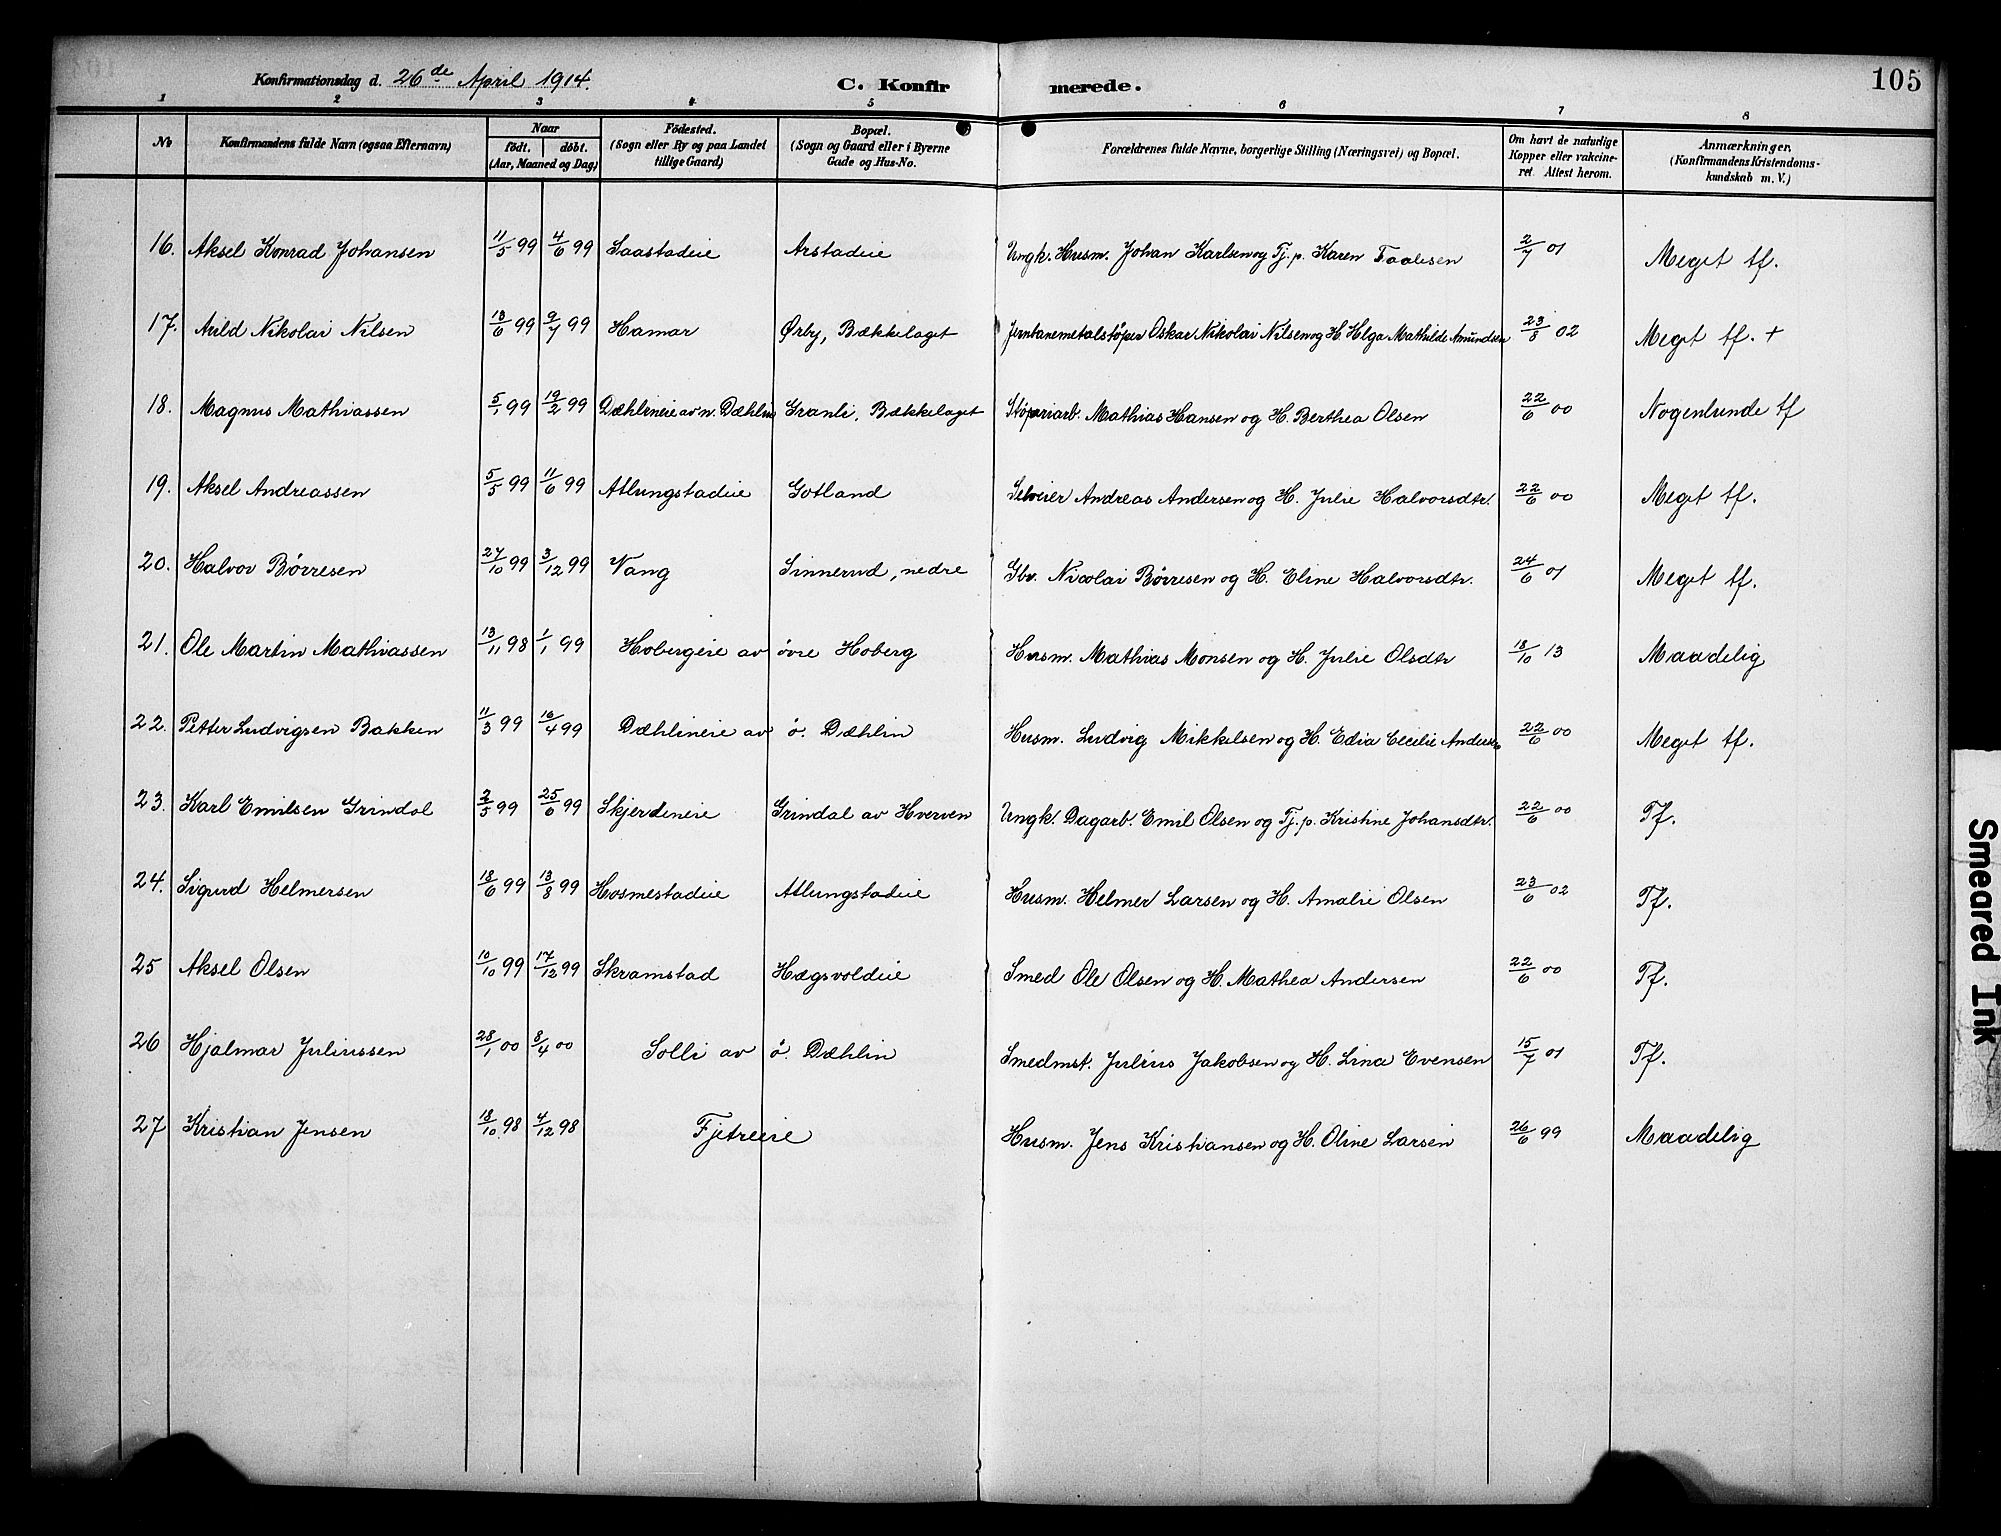 Konfirmationsdag d. 26de April 1914.
C. Konfirmerede.
105
1 2 3 4 5 6 7 8
No
Konfirmandens fulde Navn (ogsaa Efternavn)
Naar
födt. döbt.
(Aar, Maaned og Dag)
Födested.
(Sogn eller By og paa Landet
tillige Gaard)
Bopæl.
(Sogn og Gaard eller i Byerne
Gade og Hus-No.
Forældrenes fulde Navne, borgerlige Stilling (Næringsvei) og Bopæl.
Om havt de naturlige
Kopper eller vakcine-
ret. Attest herom.
Anmærkninger.
(Konfirmandens Kristendoms-
kundskab m. V.)
16. Aksel Konrad Johansen 11/5 99 4/6 99 Saastadeie Arstadeie Ungk. Husm. Johan Karlsen og Tj. p. Karen Paalesen 2/7 01 Meget tf.
17. Arild Nikolai Nilsen 13/6 99 9/7 99 Hamar Ørby, Bækkelaget Jernbanemetalstøper Oskar Nikolai Nilsen og H. Helga Mathilde Amundsen 23/8 02 Meget tf. +
18. Magnus Mathiassen 5/1 99 19/2 99 Dæhlineie av n. Dæhlin Granli, Bækkelaget Støperiarb. Mathias Hansen og H. Berthea Olsen 22/6 00 Nogenlunde tf
19. Aksel Andreassen 5/5 99 11/6 99 Atlungstadeie Gotland Selveier Andreas Andersen og H. Julie Halvorsdtr. 22/6 00 Meget tf.
20. Halvor Børresen 27/10 99 3/12 99 Vang Sinnerud, nedre Gbr. Nicolai Børresen og H. Eline Halvorsdtr. 24/6 01 Meget tf.
21. Ole Martin Mathiassen 13/11 98 1/1 99 Hobergeie av øvre Hoberg Husm. Mathias Monsen og H. Julie Olsdtr 18/10 13 Maadelig
22. Petter Ludvigsen Bakken 11/3 99 16/4 99 Dæhlineie av ø. Dæhlin Husm. Ludvig Mikkelsen og H. Edia Cecilie Andersen 22/6 00 Meget tf.
23. Karl Emilsen Grindal 2/5 99 25/6 99 Skjerdeneie Grindal av Hverven Ungk. Dagarb. Emil Olsen og Tj. p. Kristine Johansdtr. 22/6 00 Tf.
24. Sigurd Helmersen 18/6 99 13/8 99 Hosmestadeie Atlungstadeie Husm. Helmer Larsen og H. Amalie Olsen 23/6 02 Tf.
25 Aksel Olsen 10/10 99 17/12 99 Skramstad Hægsvoldeie Smed Ole Olsen og H. Mathea Andersen 22/6 00 Tf.
26 Hjalmar Juliussen 28/1 00 8/4 00 Solli av ø. Dæhlin Smedmst. Julius Jakobsen og H. Lina Evensen 15/7 01 Tf.
27 Kristian Jensen 18/10 98 4/12 98 Fjetreeie Husm. Jens Kristiansen og H. Oline Larsen 26/6 99 Maadelig
Smeared Ink